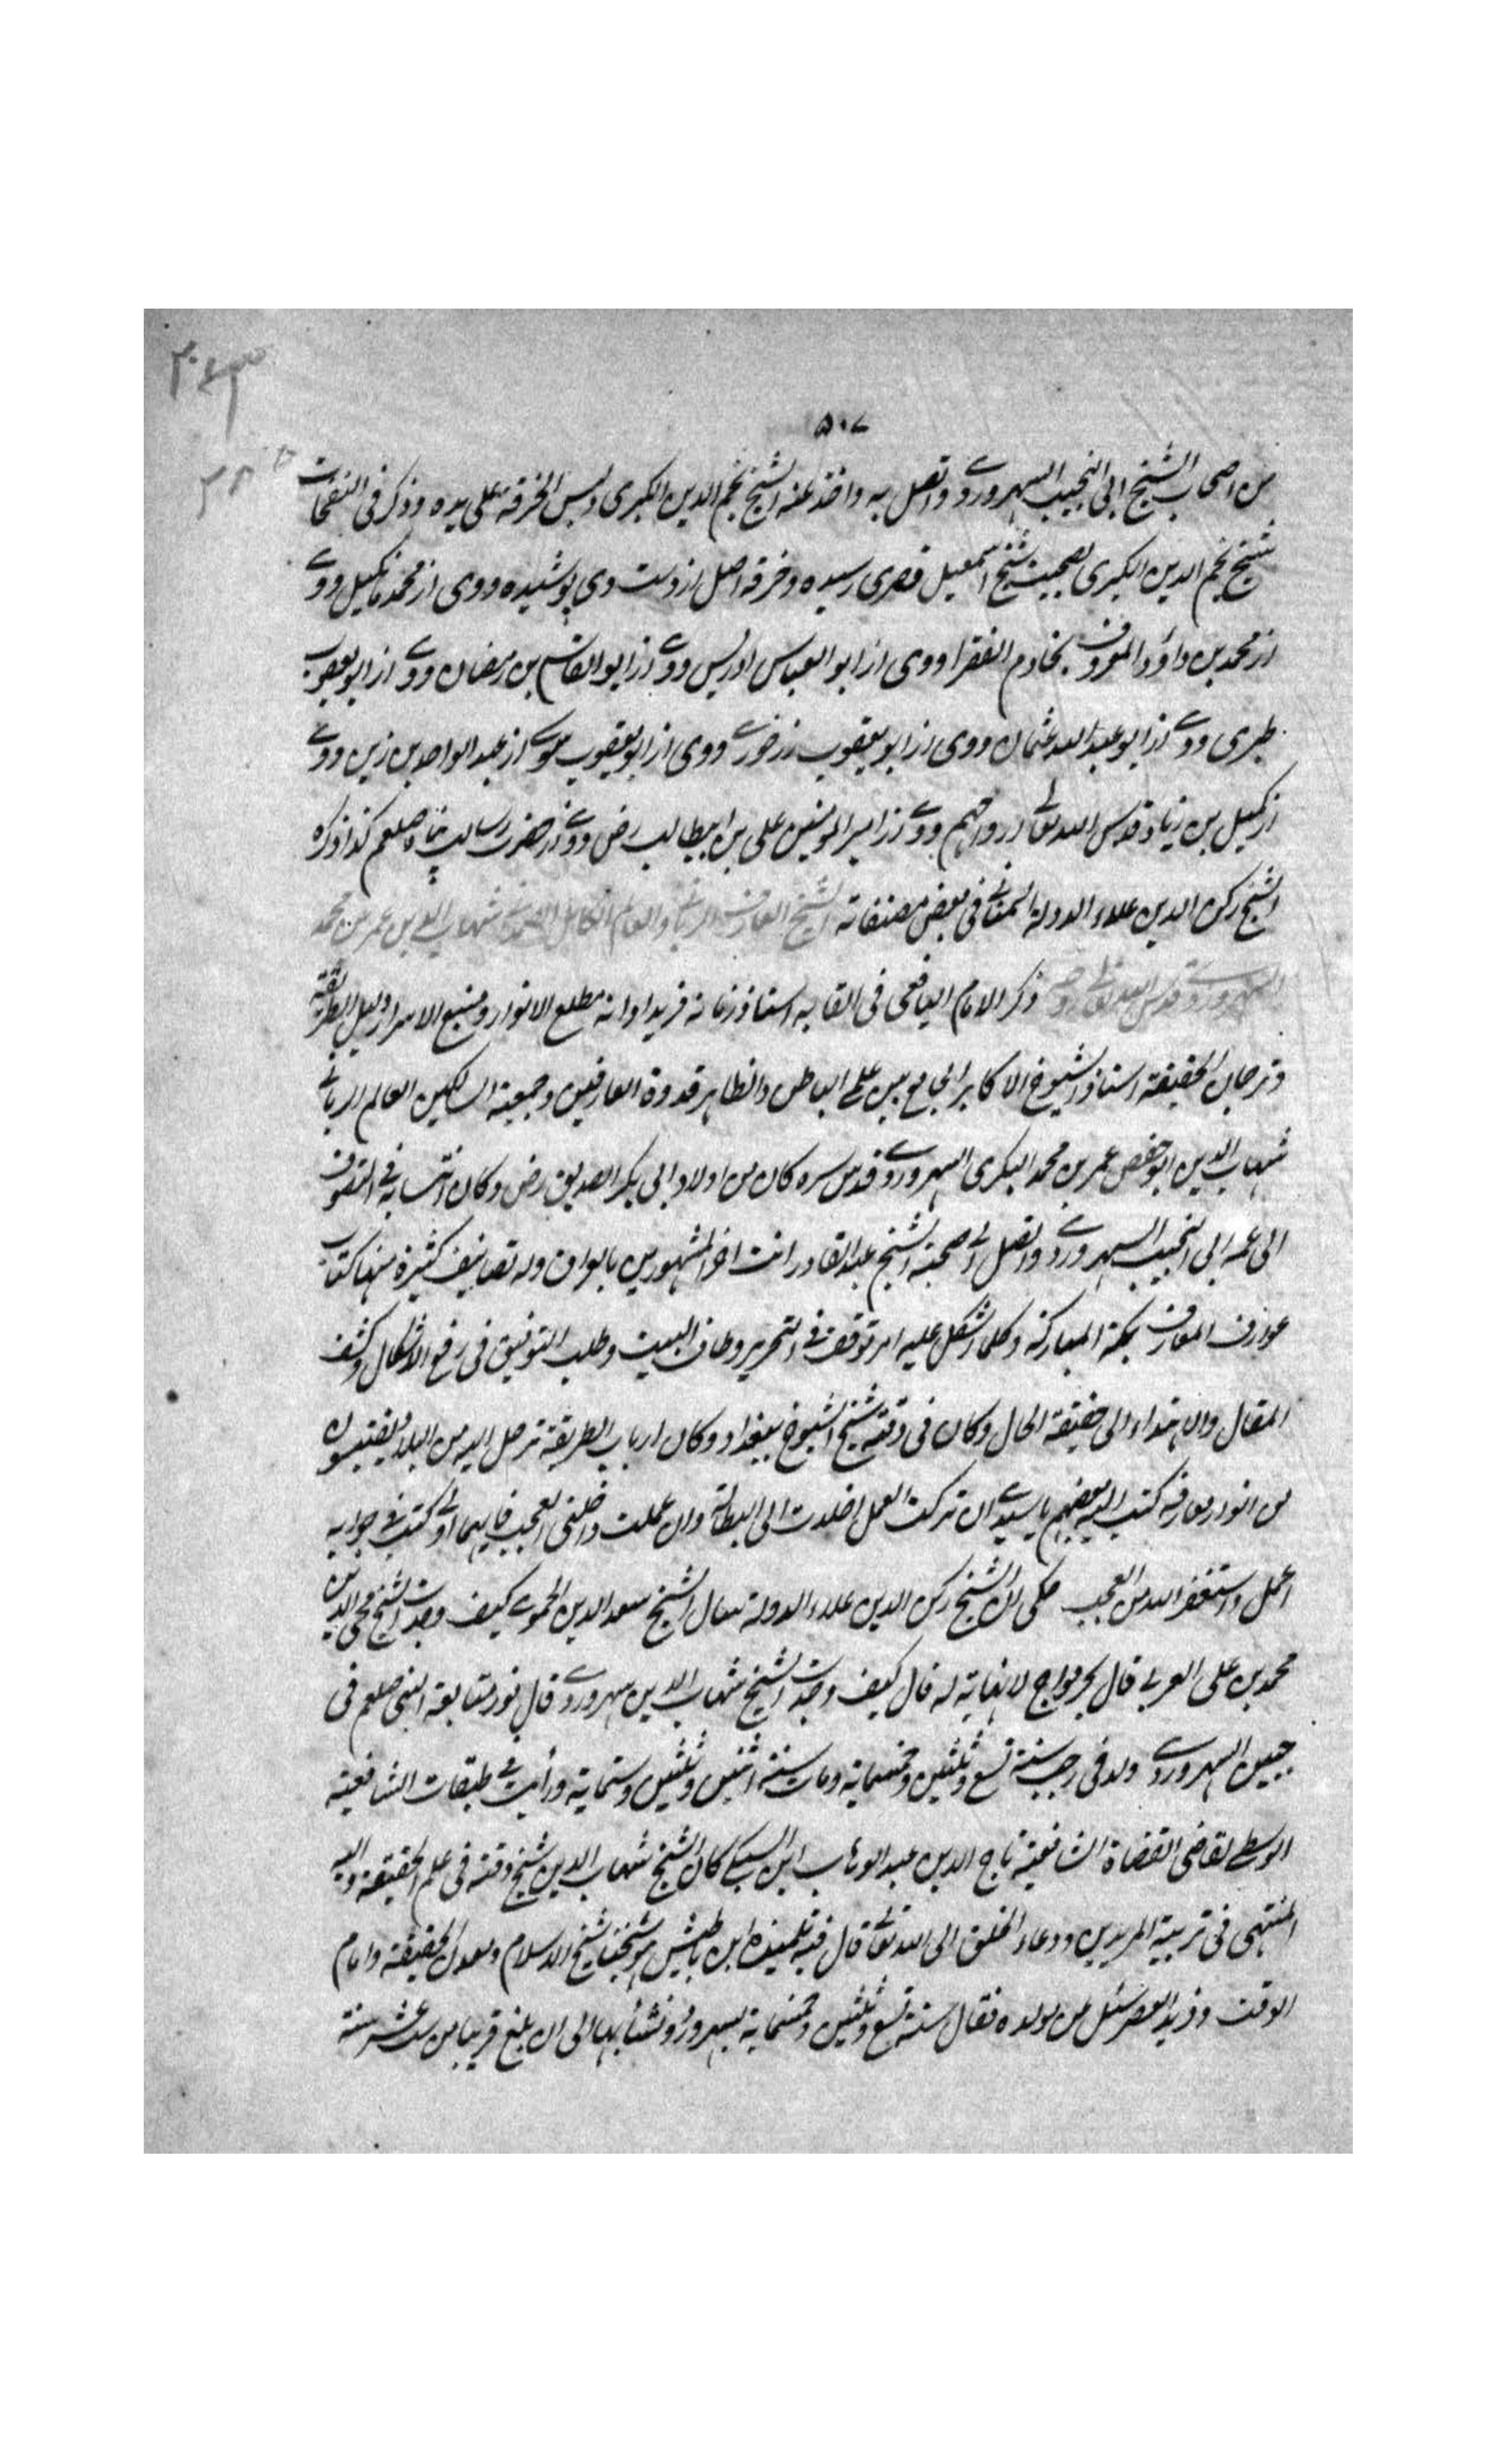 ٥٠٧
من اصحاب الشيخ ابى النجيب السهروردے واتصل به واخذ عنه الشيخ نجم الدين الكبرى ولبس الخرقة على يده وذكر فى النفحات
شيخ نجم الدين الكبرى بصحبت شيخ اسمعيل قصرى رسيده وخرقه اصل از دست وى پوشيده ووى از محمد مانكيل ووے
از محمد بن داؤد المعروف بخادم الفقرا ووى از ابو العباس ادريس ووے از ابو القاسم بن رمضان ووے از ابو يعقوب
طبرى ووے از ابو عبد الله عثمان ووى از ابو يعقوب نهرجورے ووى از ابو يعقوب سوسے از عبد الواحد بن زين ووے
از كميل بن زياد قدس الله تعالے ارواحهم ووے از امير المومنين على بن ابيطالب رض ووے از حضرت رسالت پناه صلعم كذا ذكره
الشيخ ركن الدين علاء الدولة السمنانے فى بعض مصنفاته الشيخ العارف الربانے والعالم الكامل الصمدانے شهاب الدين عمر بن محمد
السهروردے قدس الله تعالے روحه ذكر الامام اليافعى فى القابه استاذ زمانه فريد اوانه مطلع الانوار ومنبع الاسرار دليل الطريقة
وترجمان الحقيقة استاذ الشيوخ الاكابر الجامع بين علمے الباطن والظاهر قدوة العارفين وجمعية السالكين العالم الربانے
شهاب الدين ابو حفص عمر بن محمد البكرى السهروردے قدس سره كان من اولاد ابى بكر الصديق رض وكان انتسابه فے التصوف
الى عمه ابى النجيب السهروردے واتصل الے صحبته الشيخ عبد القادر انت اخر المشهورين بالعراق وله تصانيف كثيرة منها كتاب
عوارف المعارف بمكة المباركة وكلما اشكل عليه امر توقف فے التحرير وطاف البيت وطلب التوفيق فى رفع الاشكال وكشف
المقال والاهتداء الى حقيقة الحال وكان فى وقته شيخ الشيوخ ببغداد وكان ارباب الطريقة ترحل اليه من البلاد يقتبسون
من انوار معارفه كتب اليه بعضهم يا سيدے ان تركت العمل اخلدت الى البطالة وان عملت داخلنى العجب فايهما اولے كتب فے جوابه
اعمل واستغفر الله من العجب حكى ان الشيخ ركن الدين علاء الدولة سال الشيخ سعد الدين الحموے كيف وجدت الشيخ محى الدين
محمد بن على العربے قال بحر مواج لا نهاية له قال كيف وجدت الشيخ شهاب الدين سهروردے قال نور متابعة النبى صلعم فى
جبين السهروردے ولد فى رجب سنة تسع وثلثين وخمسماية ومات سنة اثنين وثلثين وستماية ورأيت فے طبقات الشافعية
الوسطے لقاضى القضاة الشافعية تاج الدين عبد الوهاب ابن السبكے كان الشيخ شهاب الدين شيخ وقته فى علم الحقيقة واليه
المنتهى فى تربية المريدين ودعاء الخلق الى الله تعالے قال فيه تلميذه ابن باطيش هو شيخنا شيخ الاسلام ومعدل الحقيقة وامام
الوقت وفريد العصر سئل من مولده فقال سنة تسع وثلثين وخمسماية بسهرورد ونشأ بها الى ان بلغ قريبا من ست عشر سنة